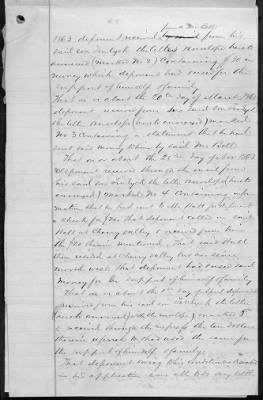 a Mr. Bell
1863 deponent received from his
said son Van Wyck the letter & envelope hereto
annexed (marked No 2) Containing $20 in
money which deponent had used for the
support of himself & family
That on or about the 20th day of March 1863
deponent received from said son Van Wyck
the letter & envelope (hereto annexed) marked
No 3 Containing a statement that he had
sent said money home by said Mr Bell
That on or about the 25th day of Nov 1863
deponent received through the mail from
his said son Van Wyck the letter & envelope (hereto
annexed) marked No 4 Containing infor-
mation that he had sent to Mr Hall for deponent
a check for $20 That deponent called on said
Hall at Cherry Valley & received from him
the $20 therein mentioned. That said Hall
then resided at Cherry Valley but has since
moved west that deponent has used said
money for the support of himself & family
That on or about the day of deponent
received from his said son Van Wyck the letter
(hereto annexed) (with the envelope) marked 5
& received through the express the ten dollars
therein referred to & has used the same for
the support of himself & family
That deponent
in his application letter